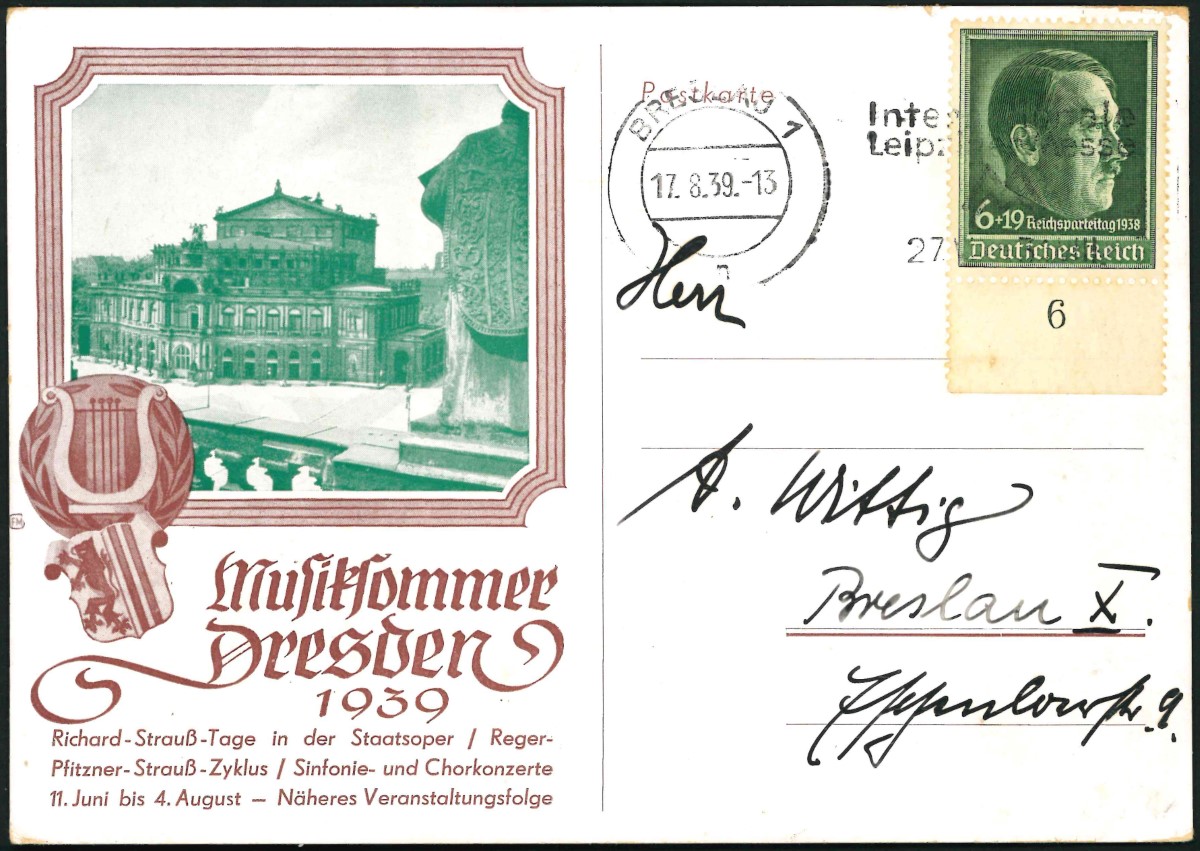 Musiksommer
Dresden
1939
Richard-Strauß-Tage in der Staatsoper / Reger-
Pfitzner-Strauß-Zyklus / Sinfonie- und Chorkonzerte
11. Juni bis 4. August — Näheres Veranstaltungsfolge
FM
Postkarte
BRESLAU 1
17.8.39.-13
n
Internationale
Leipziger Messe
27.
6+19 Reichsparteitag 1938
Deutsches Reich
6
Herr
A. Wittig
Breslau X.
9.